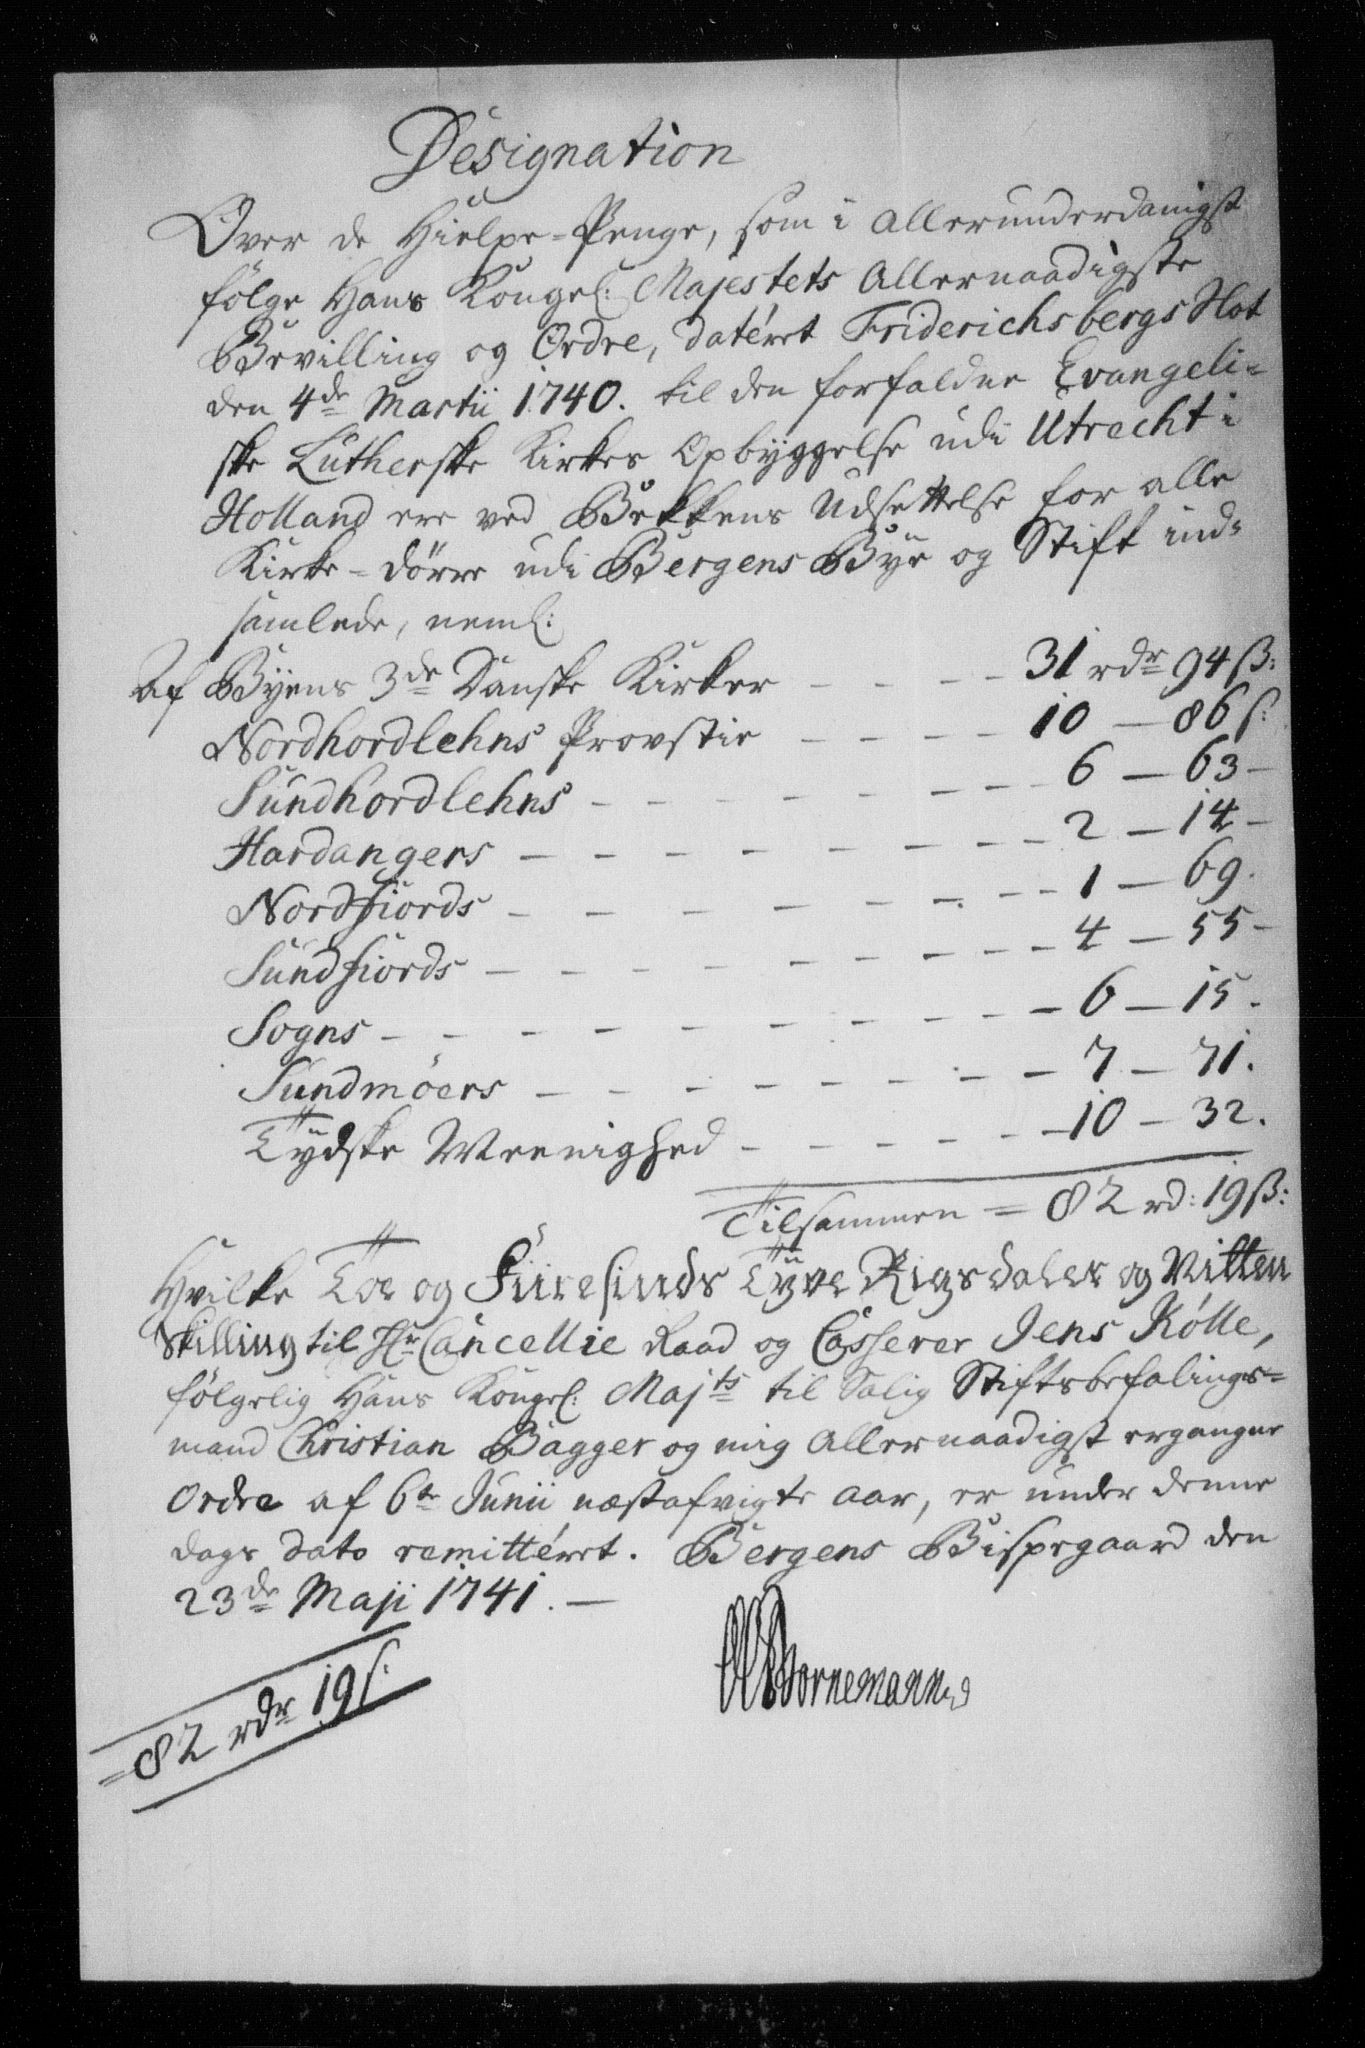 Designation
Over de Hielpe-Penge, som i Allerunderdanigst
følge Hans Kongel: Majestets Allernaadigste
Bevilling og Ordre, datéret Friderichsbergs Slot
den 4de Martii 1740. til den forfaldne Evangeli-
ske Lutherske Kirkes Opbyggelse udi Utrecht i
Holland ere ved Bekkens Udsettelse for alle
Kirke-dörre udi Bergens Bye og Stift ind-
samlede, neml:
Af Byens 3de Danske Kirker - - - - 31 rdr 94 ß:
Nordhordlehns Provstie - - - - - 10 - 86 s:
Sundhordlehns - - - - - - - - 6 - 63 -
Hardangers - - - - - - - - - 2 - 14 -
Nordfiords - - - - - - - - - 1 - 69.
Sundfiords - - - - - - - - - 4 - 55 -
Sogns - - - - - - - - - - 6 - 15.
Sundmöers - - - - - - - - - 7 - 71.
Tydske Meenighed - - - - - - 10 - 32.
Tilsammen = 82 rd: 19 ß:
Hvilke Toe og Fiiresinds Tyve Rigsdaler og Nitten
Skilling til Hr Cancellie Raad og Casserer Jens Kølle,
følgelig Hans Kongel: Majts til Salig Stiftsbefalings-
mand Christian Bagger og mig Allernaadigst ergangne
Ordre af 6te Junii næstafvigte Aar, er under denne
dags dato remittéret. Bergens Bispegaard den
23de Maji 1741. -
Bornemann
= 82 rdr 19 s: